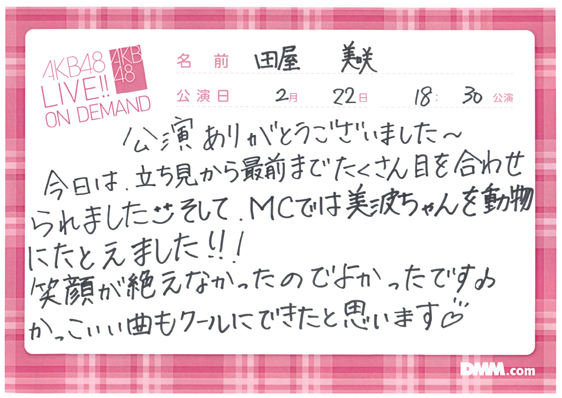 AKB48
LIVE!!
ON DEMAND
AKB
48
名前 田屋 美咲
公演日 2月 22日 18:30 公演
公演ありがとうございました～
今日は、立ち見から最前までたくさん目を合わせ
られました そして、MCでは美波ちゃんを動物
にたとえました!!!
笑顔が絶えなかったのでよかったです♪
かっこいい曲もクールにできたと思います♡
DMM.com